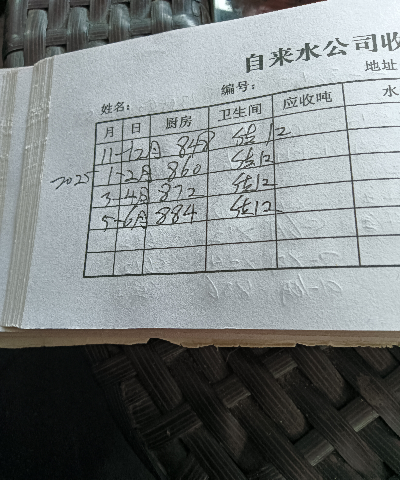 自来水公司收
地址
姓名： 编号：
月 日 厨房 卫生间 应收吨 水
11-12月 848 结12
2025 1-2月 860 结12
3-4月 872 结12
5-6月 884 结12